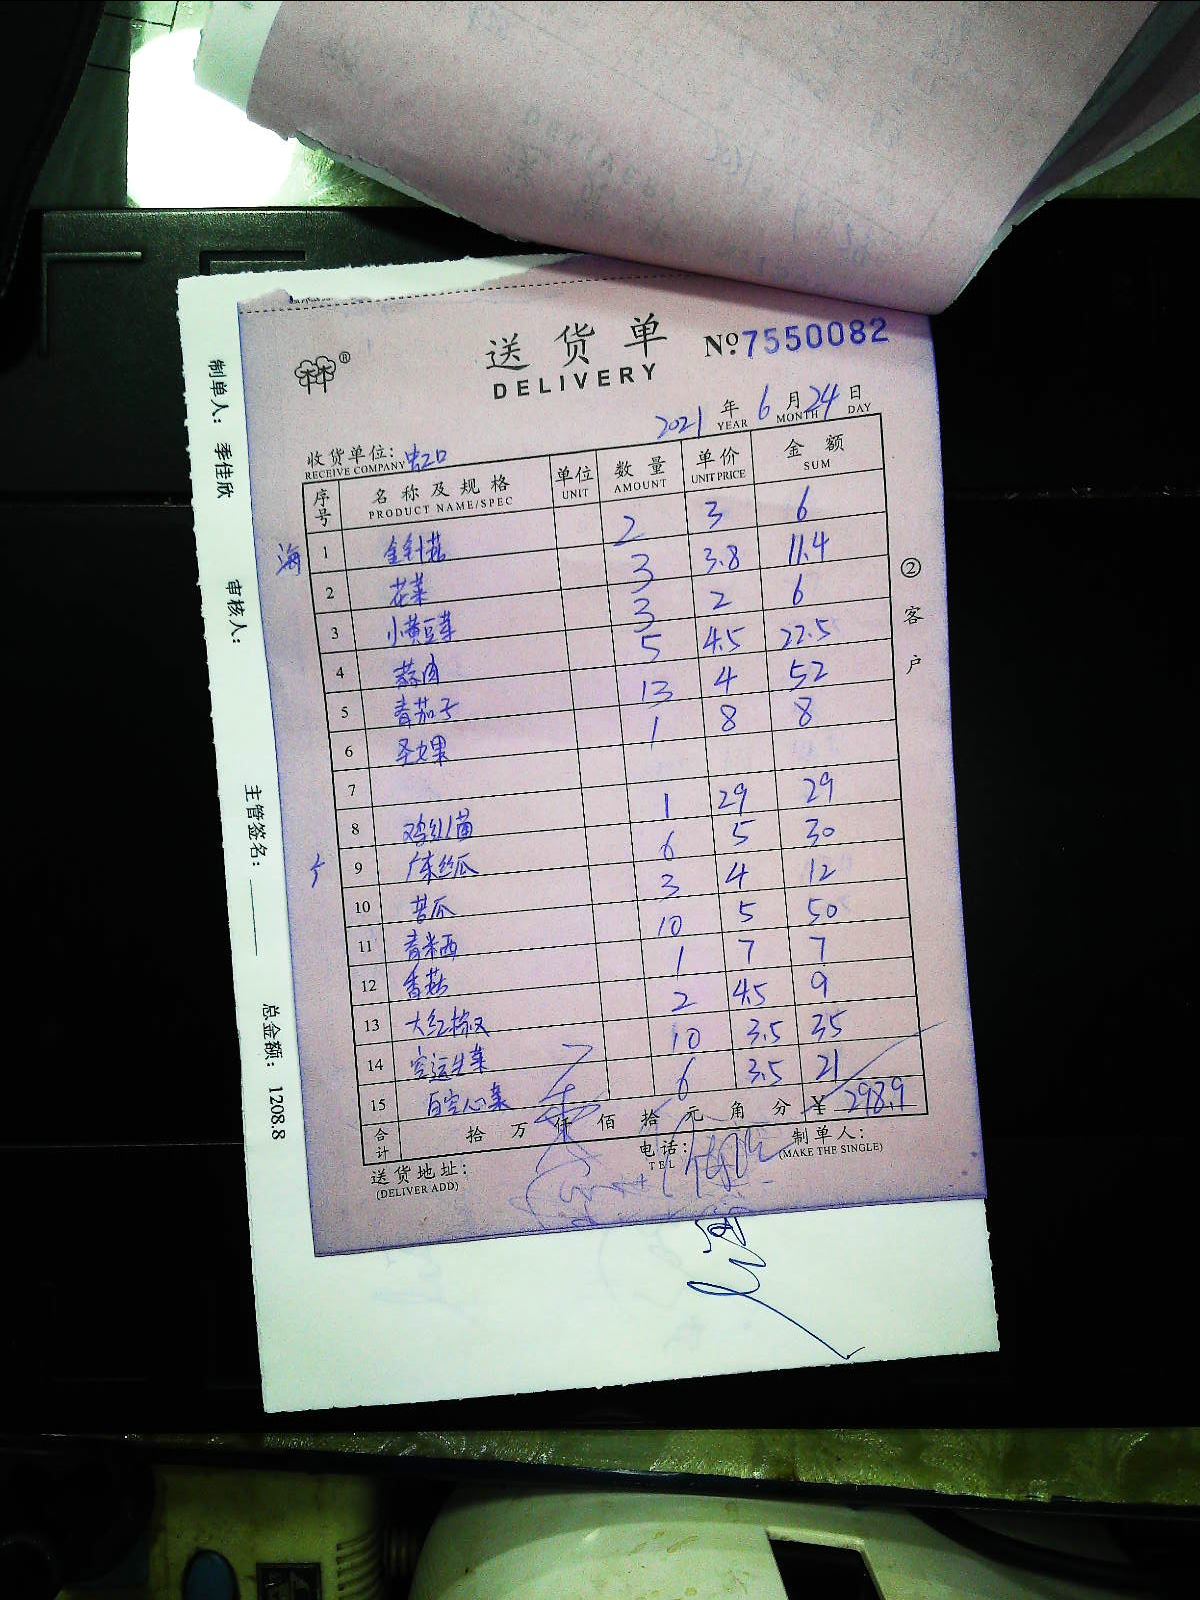 送货单 No.7550082
DELIVERY
2021 年 6 月 24 日
YEAR MONTH DAY
收货单位: 虹口
RECEIVE COMPANY
序号 名称及规格 单位 数量 单价 金额
PRODUCT NAME/SPEC UNIT AMOUNT UNIT PRICE SUM
海
1 金针菇 2 3 6
2 花菜 3 3.8 11.4
3 小黄豆芽 3 2 6
4 蒜肉 5 4.5 22.5
5 青茄子 13 4 52
6 圣女果 1 8 8
7
8 鸡红菌 1 29 29
9 广东丝瓜 6 5 30
10 苦瓜 3 4 12
11 青米西 10 5 50
12 香菇 1 7 7
13 大红椒 2 4.5 9
14 空运生菜 10 3.5 35
15 白空心菜 6 3.5 21
合计 拾 万 仟 佰 拾 元 角 分 ¥ 298.9
送货地址: 电话: 制单人:
(DELIVER ADD) TEL (MAKE THE SINGLE)
②客户
制单人: 季佳欣 审核人: 主管签名: 总金额: 1208.8